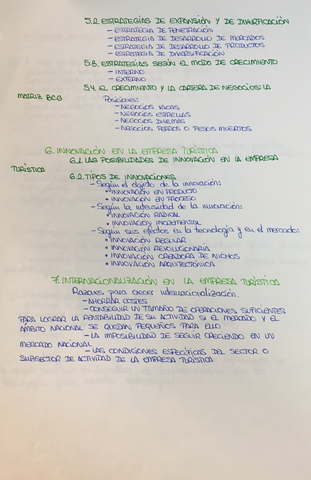 5.2. ESTRATEGIAS DE EXPANSIÓN Y DE DIVERSIFICACIÓN
- ESTRATEGIA DE PENETRACIÓN
- ESTRATEGIA DE DESARROLLO DE MERCADOS
- ESTRATEGIA DE DESARROLLO DE PRODUCTOS
- ESTRATEGIA DE DIVERSIFICACIÓN
5.3. ESTRATEGIAS SEGÚN EL MODO DE CRECIMIENTO
- INTERNO
- EXTERNO
5.4. EL CRECIMIENTO Y LA CARTERA DE NEGOCIOS: LA
MATRIZ BCG
Posiciones:
- NEGOCIOS VACAS
- NEGOCIOS ESTRELLAS
- NEGOCIOS DILEMAS
- NEGOCIOS PERROS O PESOS MUERTOS
6. INNOVACIÓN EN LA EMPRESA TURÍSTICA
6.1. LAS POSIBILIDADES DE INNOVACIÓN EN LA EMPRESA
TURÍSTICA
6.2. TIPOS DE INNOVACIONES
- Según el objeto de la innovación:
• INNOVACIÓN EN PRODUCTO
• INNOVACIÓN EN PROCESO
- Según la intensidad de la innovación:
• INNOVACIÓN RADICAL
• INNOVACIÓN INCREMENTAL
- Según sus efectos en la tecnología y en el mercado:
• INNOVACIÓN REGULAR
• INNOVACIÓN REVOLUCIONARIA
• INNOVACIÓN CREADORA DE NICHOS
• INNOVACIÓN ARQUITECTÓNICA
7. INTERNACIONALIZACIÓN EN LA EMPRESA TURÍSTICA
Razones para crecer internacionalización.
- AHORRAR COSTES
- CONSEGUIR UN TAMAÑO DE OPERACIONES SUFICIENTES
PARA LOGRAR LA RENTABILIDAD DE SU ACTIVIDAD SI EL MERCADO Y EL
ÁMBITO NACIONAL SE QUEDAN PEQUEÑOS PARA ELLO
- LA IMPOSIBILIDAD DE SEGUIR CRECIENDO EN UN
MERCADO NACIONAL
- LAS CONDICIONES ESPECÍFICAS DEL SECTOR O
SUBSECTOR DE ACTIVIDAD DE LA EMPRESA TURÍSTICA